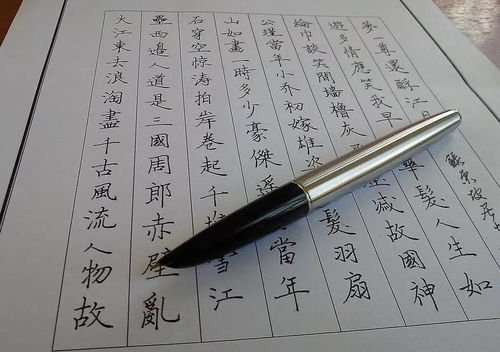 大江東去浪淘盡千古風流人物故
壘西邊人道是三國周郎赤壁亂
石穿空惊涛拍岸卷起千雪江
山如畫一時多少豪傑遥當年
公瑾當年小乔初嫁雄姿髮羽扇
綸巾談笑間墙櫓灰滅故國神
遊多情應笑我早華髮人生如
夢一尊還酹江月
蘇東坡